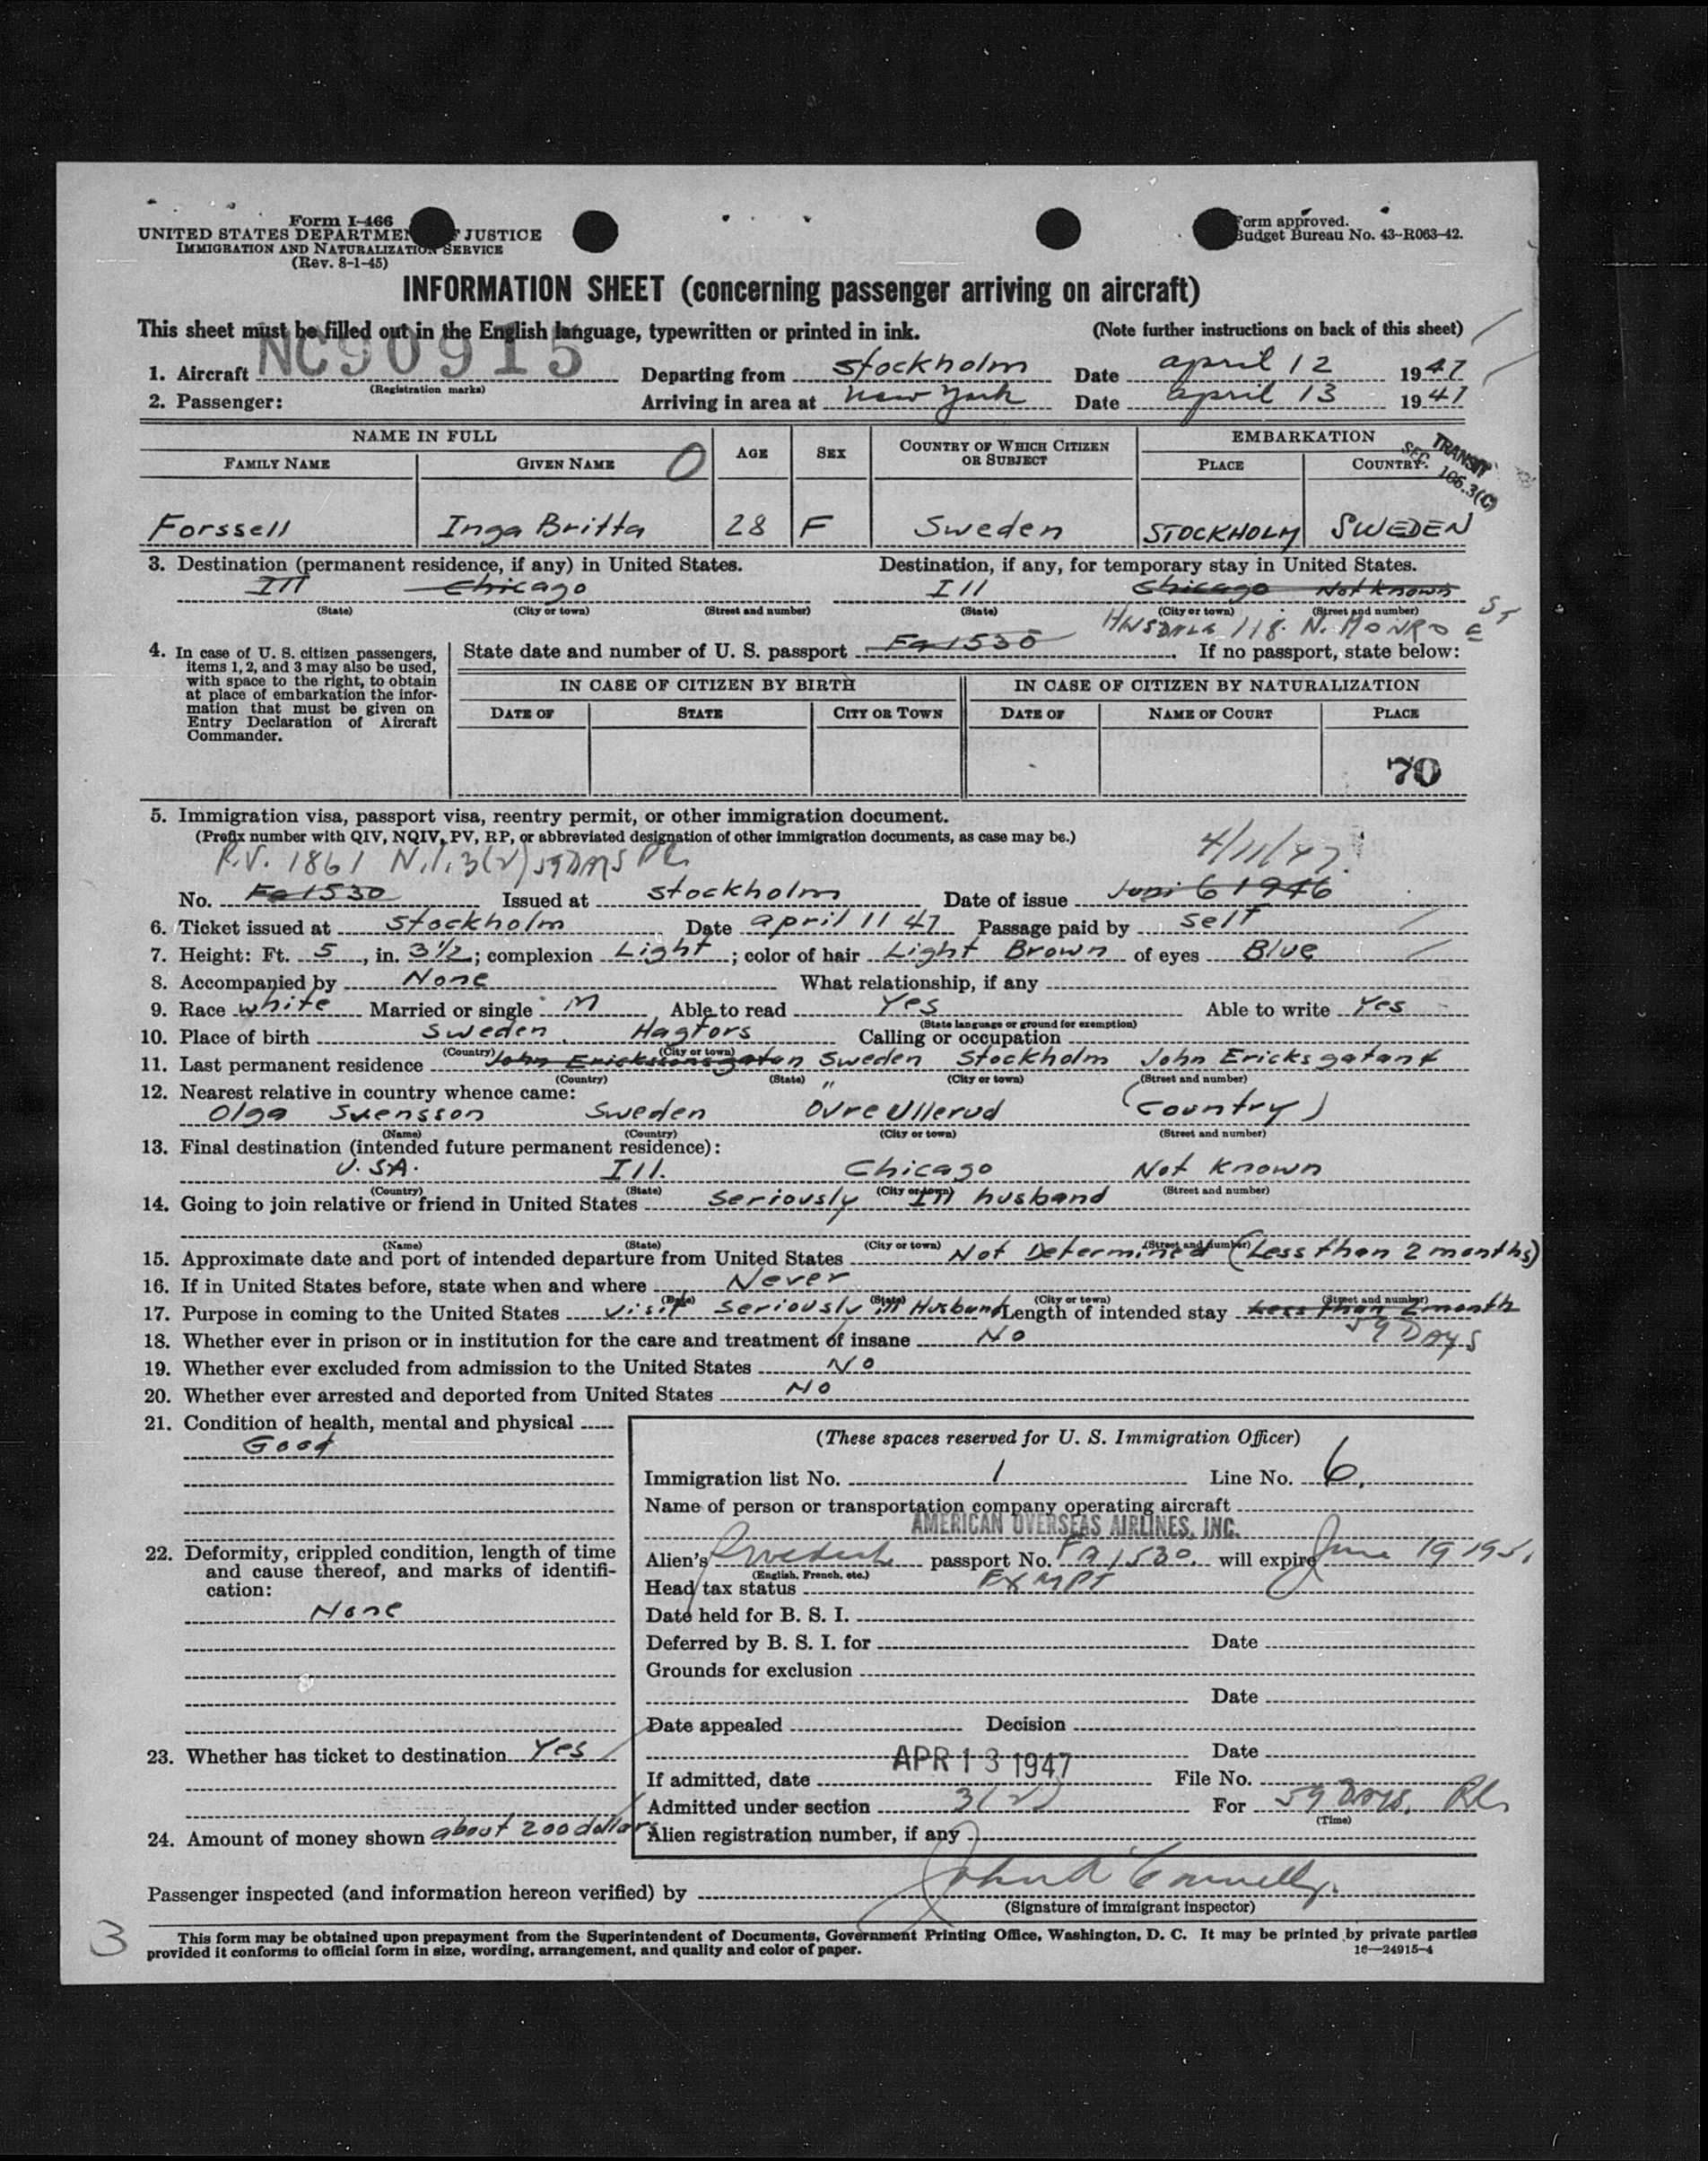 Form I-466
UNITED STATES DEPARTMENT OF JUSTICE
IMMIGRATION AND NATURALIZATION SERVICE
(Rev. 8-1-45)
Form approved.
Budget Bureau No. 43-R063-42.
INFORMATION SHEET (concerning passenger arriving on aircraft)
This sheet must be filled out in the English language, typewritten or printed in ink. (Note further instructions on back of this sheet)
1. Aircraft NC90915 Departing from Stockholm Date april 12 1947
(Registration marks)
2. Passenger: Arriving in area at New York Date april 13 1947
NAME IN FULL AGE SEX COUNTRY OF WHICH CITIZEN OR SUBJECT EMBARKATION
FAMILY NAME GIVEN NAME 0 PLACE COUNTRY
TRANSIT
SEC. 106.3(C)
Forssell Inga Britta 28 F Sweden STOCKHOLM SWEDEN
3. Destination (permanent residence, if any) in United States. Destination, if any, for temporary stay in United States.
Ill Chicago Ill Chicago Not known
(State) (City or town) (Street and number) (State) (City or town) (Street and number)
118 N. MONROE ST
4. In case of U. S. citizen passengers, items 1, 2, and 3 may also be used, with space to the right, to obtain at place of embarkation the information that must be given on Entry Declaration of Aircraft Commander.
State date and number of U. S. passport Fa 1530 If no passport, state below:
IN CASE OF CITIZEN BY BIRTH IN CASE OF CITIZEN BY NATURALIZATION
DATE OF STATE CITY OR TOWN DATE OF NAME OF COURT PLACE
70
5. Immigration visa, passport visa, reentry permit, or other immigration document.
(Prefix number with QIV, NQIV, PV, RP, or abbreviated designation of other immigration documents, as case may be.)
P.V. 1861 N.I. 3(2) 59 DAYS 4/11/47
No. Fa 1530 Issued at Stockholm Date of issue Juni 6 1946
6. Ticket issued at Stockholm Date april 11 47 Passage paid by Self
7. Height: Ft. 5, in. 3½; complexion Light; color of hair Light Brown of eyes Blue
8. Accompanied by None What relationship, if any
9. Race white Married or single M Able to read Yes Able to write Yes
(State language or ground for exemption)
10. Place of birth Sweden, Hagfors Calling or occupation
(Country) (City or town)
11. Last permanent residence John Erickssonsgatan Sweden Stockholm John Ericksgatan 4
(Country) (State) (City or town) (Street and number)
12. Nearest relative in country whence came: "
Olga Svensson Sweden Ovre Ullerud (Country)
(Name) (Country) (City or town) (Street and number)
13. Final destination (intended future permanent residence):
U.S.A. Ill. Chicago Not known
(Country) (State) (City or town) (Street and number)
14. Going to join relative or friend in United States Seriously Ill husband
(Name) (State) (City or town) (Street and number)
15. Approximate date and port of intended departure from United States Not Determined (Less than 2 months)
16. If in United States before, state when and where Never
(Date) (State) (City or town) (Street and number)
17. Purpose in coming to the United States visit seriously ill Husband Length of intended stay Less than 2 month
59 DAYS
18. Whether ever in prison or in institution for the care and treatment of insane No
19. Whether ever excluded from admission to the United States No
20. Whether ever arrested and deported from United States No
21. Condition of health, mental and physical
Good
22. Deformity, crippled condition, length of time and cause thereof, and marks of identification:
None
23. Whether has ticket to destination Yes
24. Amount of money shown about 200 dollars
(These spaces reserved for U. S. Immigration Officer)
Immigration list No. 1 Line No. 6
Name of person or transportation company operating aircraft
AMERICAN OVERSEAS AIRLINES, INC.
Alien's Swedish passport No. FA 1530 will expire June 19 1951
(English, French, etc.)
Head tax status EXMPT
Date held for B. S. I.
Deferred by B. S. I. for Date
Grounds for exclusion
Date
Date appealed Decision
Date
If admitted, date APR 13 1947 File No.
Admitted under section 3(2) For 59 Days.
(Time)
Alien registration number, if any
Passenger inspected (and information hereon verified) by
(Signature of immigrant inspector)
3
This form may be obtained upon prepayment from the Superintendent of Documents, Government Printing Office, Washington, D. C. It may be printed by private parties
provided it conforms to official form in size, wording, arrangement, and quality and color of paper. 16—24915-4